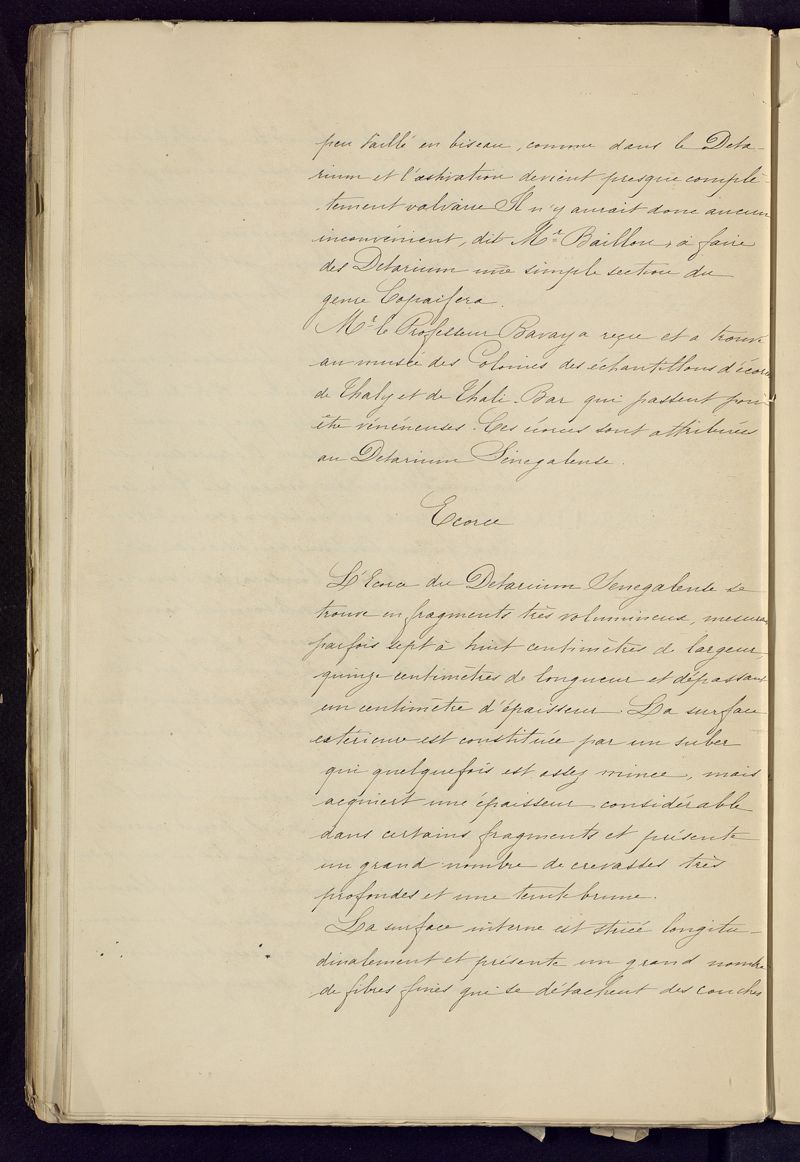 peu taillé en biseau, comme dans le Deta-
rium et l'estivation devient presque complè-
tement valvaire Il n'y aurait donc aucun
inconvénient, dit Mr Baillon, à faire
des Detarium une simple section du
genre Copaifera.
Mr le Professeur Bavay a reçu et a trouvé
au musée des Colonies des échantillons d'écorce
de Thaly et de Thali-Bar qui passent pour
être vénéneuses. Ces écorces sont attribuées
au Detarium Sénegalense.
Ecorce
L'Ecorce du Detarium Senegalense se
trouve en fragments très volumineux, mesurant
parfois sept à huit centimètres de largeur,
quinze centimètres de longueur et dépassant
un centimètre d'épaisseur. La surface
extérieure est constituée par un suber
qui quelquefois est assez mince, mais
acquiert une épaisseur considérable
dans certains fragments et présente
un grand nombre de crevasses très
profondes et une teinte brune.
La surface interne est striée longitu-
dinalement et présente un grand nombre
de fibres fines qui se détachent des couches